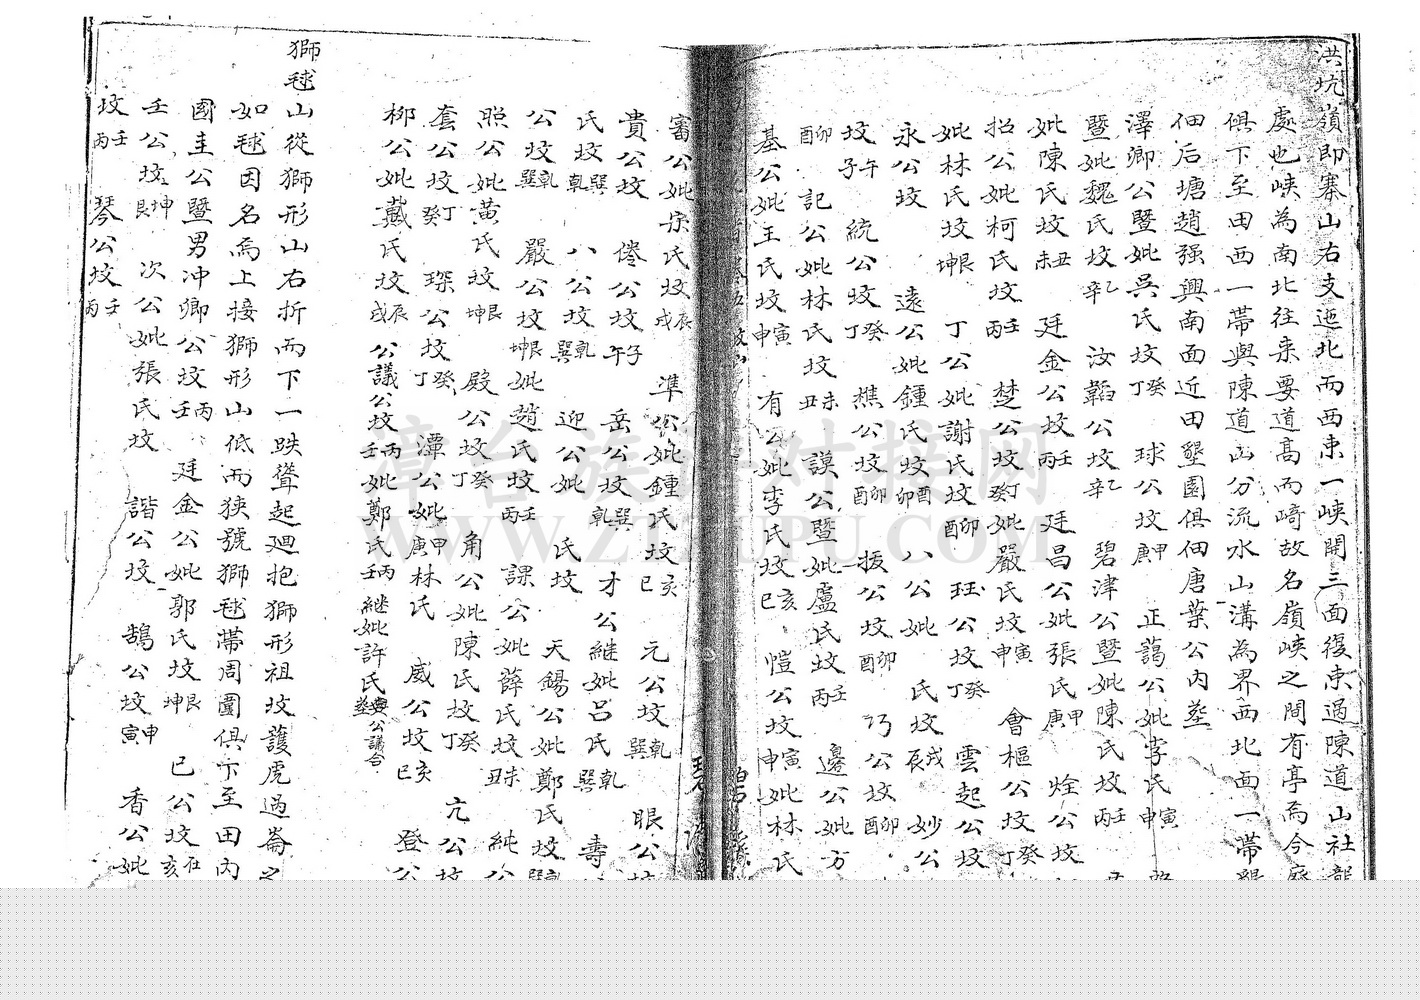 洪坑嶺即寨山右支迤北而西東一峽開三面復東過陳道山社龍
處也峽為南北往來要道高而崎故名嶺峽之間有亭焉今廢
俱下至田西一帶與陳道山分流水山溝為界西北面一帶
佃后塘趙强興南面近田墾園俱佃唐葉公內塟
澤卿公暨妣吳氏坟丁癸 球公坟庚甲 正藹公妣李氏申寅
暨妣魏氏坟辛乙 汝韜公坟辛乙 碧津公暨妣陳氏坟丙壬
妣陳氏坟未丑 廷金公坟丙壬 廷昌公妣張氏庚甲 烇公坟
招公妣柯氏坟丙壬 楚公坟癸丁妣嚴氏坟申寅 會樞公坟丁癸
妣林氏坟坤艮 丁公妣謝氏坟酉卯 珏公坟丁癸 雲起公坟
永公坟 遠公妣鍾氏坟卯酉 八公妣 氏坟辰戌 妙公
坟子午 統公坟丁癸 樵公坟酉卯 援公坟酉卯 巧公坟酉卯
酉卯 記公妣林氏坟丑未 謨公暨妣盧氏坟丙壬 邊公妣方
基公妣王氏坟申寅 有公妣李氏坟巳亥 愷公坟申寅妣林氏
審公妣宋氏坟戌辰 準公妣鍾氏坟巳亥 元公坟巽乾 眼公
貴公坟 倦公坟午子 岳公坟乾巽 才公継妣呂氏巽乾 壽
氏坟乾巽 八公坟巽乾 迎公妣 氏坟 天錫公妣鄭氏坟
公坟巽乾 嚴公坟坤艮妣趙氏坟丙壬 課公妣薛氏坟丑未 純公
照公妣黃氏坟坤艮 殿公坟丁癸 角公妣陳氏坟丁癸 亢公坟
套公坟癸丁 琛公坟丁癸 潭公妣庚甲林氏 威公坟巳亥 登公
柳公妣戴氏坟戌辰公議公坟壬丙妣鄭氏壬丙継妣許氏與公議合塟
獅毬山從獅形山右折而下一跌聳起廻抱獅形祖坟護虎過崙之
如毬因名焉上接獅形山低而狹號獅毬帶周圍俱下至田內
國圭公暨男冲卿公坟壬丙 廷金公妣郭氏坟坤艮 已公坟亥
壬公坟艮坤 次公妣張氏坟 諧公坟 鵠公坟寅申 香公妣
坟丙壬 琴公坟丙壬
漳台族谱对接网
WWW.ZTZUPU.COM